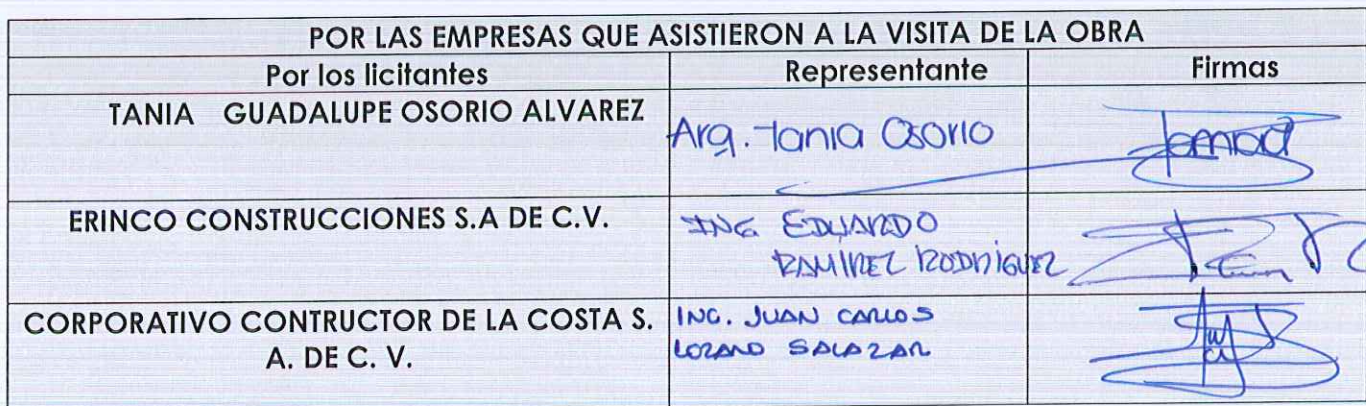 POR LAS EMPRESAS QUE ASISTIERON A LA VISITA DE LA OBRA
Por los licitantes Representante Firmas
TANIA GUADALUPE OSORIO ALVAREZ Arq. Tania Osorio
ERINCO CONSTRUCCIONES S.A DE C.V. ING. EDUARDO
RAMIREZ RODRIGUEZ
CORPORATIVO CONTRUCTOR DE LA COSTA S. ING. JUAN CARLOS
A. DE C. V. LOZANO SALAZAR